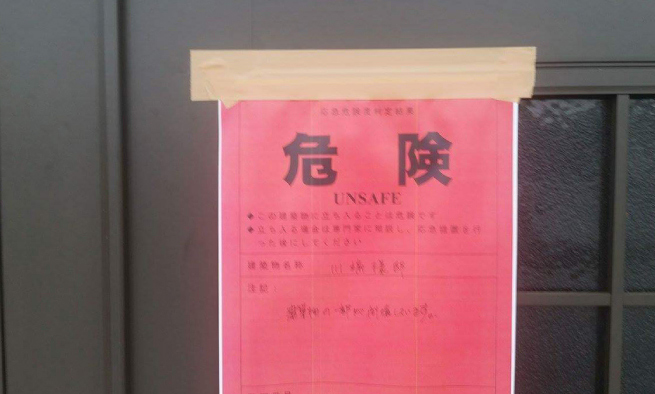 応急危険度判定結果
危 険
UNSAFE
◆この建築物に立ち入ることは危険です
◆立ち入る場合は専門家に相談し、応急措置を行
った後にしてください
建築物名称 川 様邸
注記:
の一部が しています。